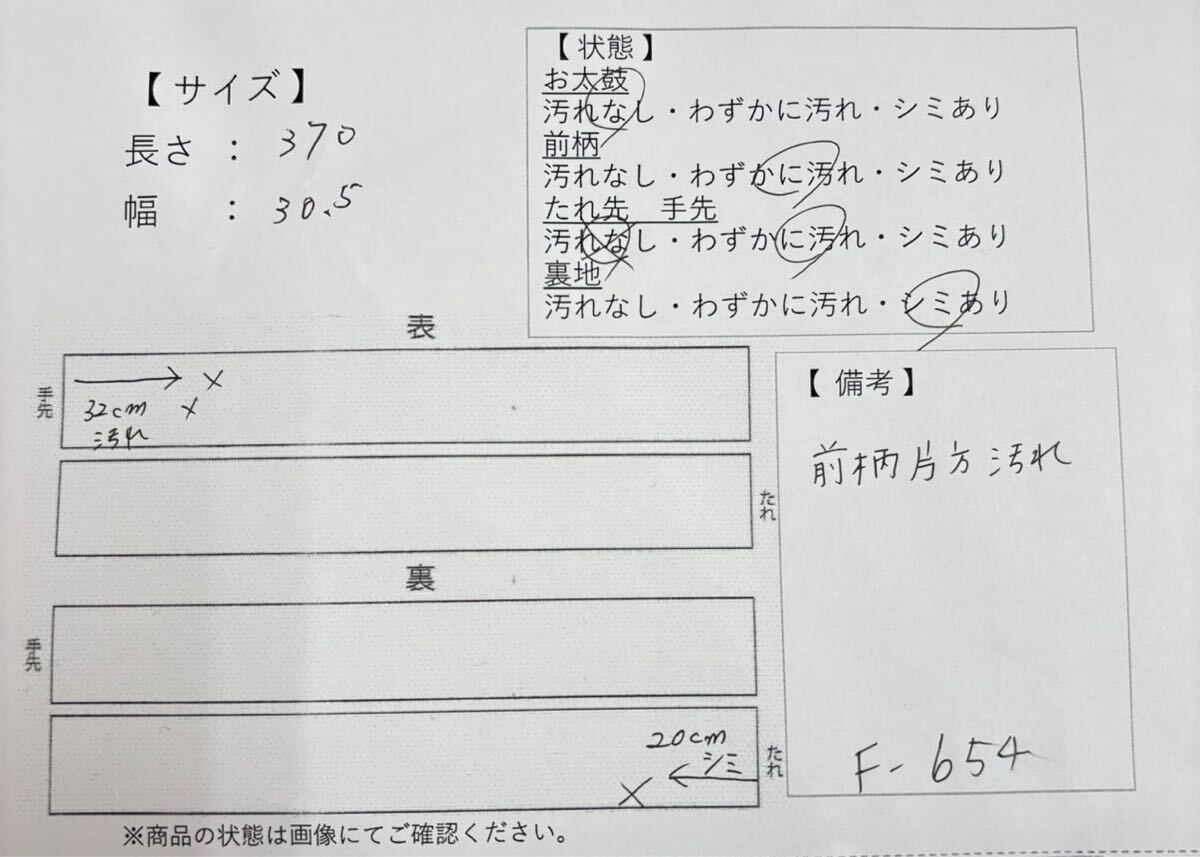 【 サイズ 】
長さ ： 370
幅 ： 30.5
【 状態 】
お太鼓
汚れなし・わずかに汚れ・シミあり
前柄
汚れなし・わずかに汚れ・シミあり
たれ先 手先
汚れなし・わずかに汚れ・シミあり
裏地
汚れなし・わずかに汚れ・シミあり
表
手先
32cm
汚れ
たれ
裏
手先
20cm
シミ
たれ
【 備考 】
前柄片方汚れ
F-654
※商品の状態は画像にてご確認ください。